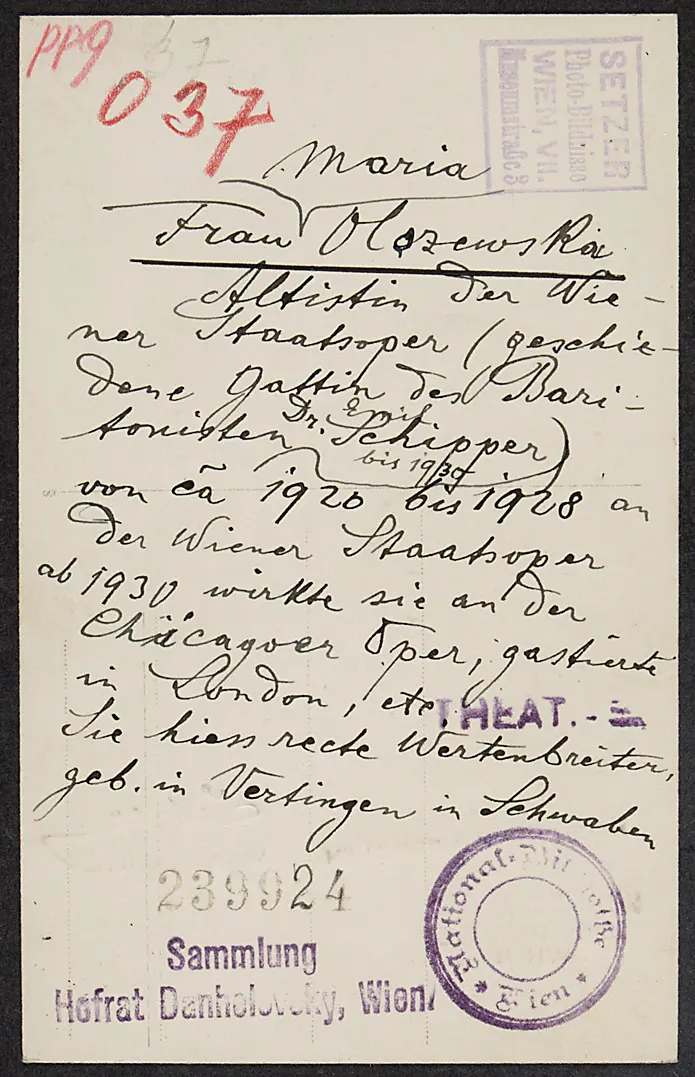 ppg
37
037
SETZER
Photo-Bildnisse
WIEN, VII.
Museumstraße 3
Maria
Frau Olszewska
Altistin der Wie-
ner Staatsoper (geschie-
dene Gattin des Bari-
tonisten Dr. Emil Schipper)
bis 1930
von ca 1920 bis 1928 an
der Wiener Staatsoper
ab 1930 wirkte sie an der
Chicagoer Oper, gastierte
in London, etc.
THEAT. -
Sie hiess recte Wertenbreiter,
geb. in Vertingen in Schwaben
239924
Sammlung
Hofrat Danhelovsky, Wien
National-Bibliothek
* Wien *